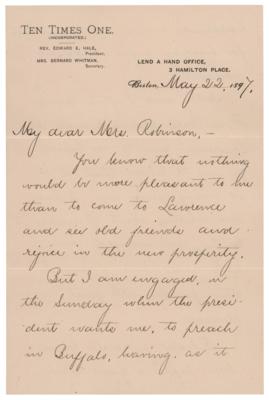 TEN TIMES ONE.
(INCORPORATED.)
REV. EDWARD E. HALE,
President.
MRS. BERNARD WHITMAN,
Secretary.
LEND A HAND OFFICE,
3 HAMILTON PLACE.
Boston, May 22, 1897.
My dear Mrs. Robinson,—
You know that nothing
would be more pleasant to me
than to come to Lawrence
and see old friends and
rejoice in the new prosperity.
But I am engaged, on
the Sunday when the presi-
dent wants me, to preach
in Buffalo, leaving, as it